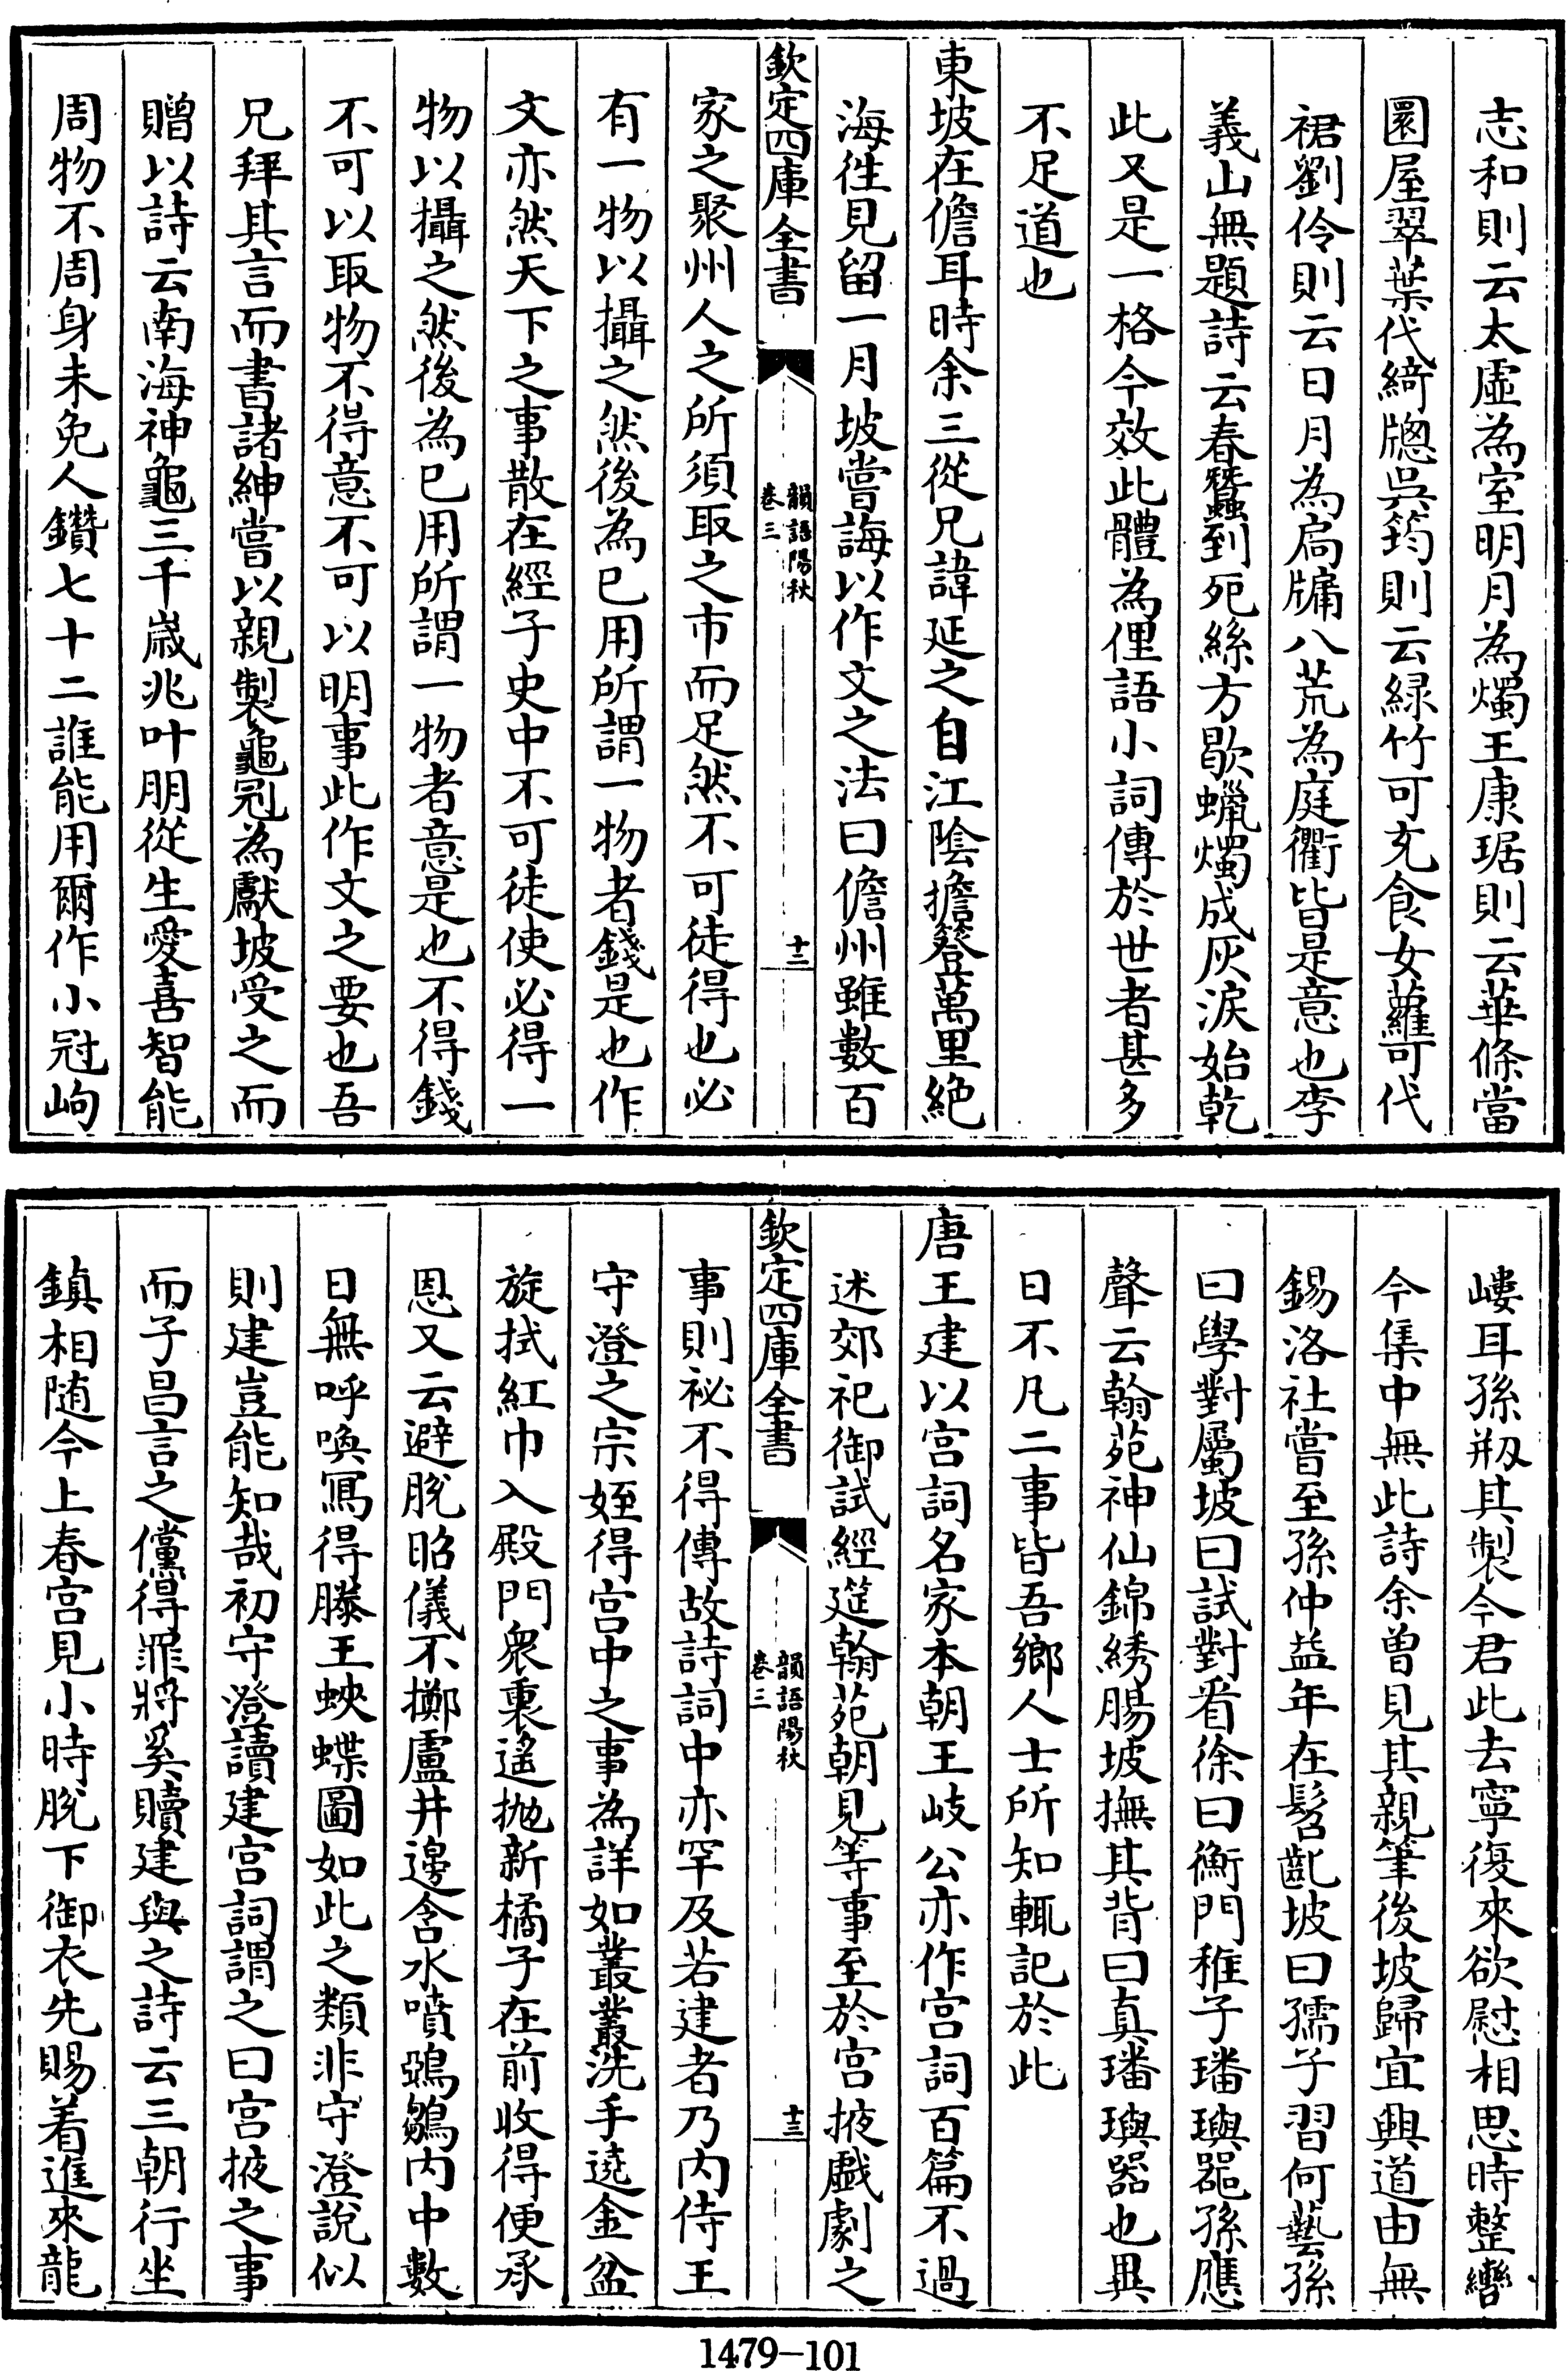 志和則云太虛為室明月為燭王康琚則云華條當
圜屋翠葉代綺牕吳筠則云緑竹可充食女蘿可代
裙劉伶則云日月為扃牖八荒為庭衢皆是意也李
義山無題詩云春蠶到死絲方歇蠟燭成灰淚始乾
此又是一格今效此體為俚語小詞傳於世者甚多
不足道也
東坡在儋耳時余三從兄諱延之自江陰擔簦萬里絶
海徃見留一月坡嘗誨以作文之法曰儋州雖數百
欽定四庫全書
韻語陽秋
卷三
十三
家之聚州人之所須取之市而足然不可徒得也必
有一物以攝之然後為己用所謂一物者錢是也作
文亦然天下之事散在經子史中不可徒使必得一
物以攝之然後為已用所謂一物者意是也不得錢
不可以取物不得意不可以明事此作文之要也吾
兄拜其言而書諸紳嘗以親製龜冠為獻坡受之而
贈以詩云南海神龜三千歲兆叶朋從生愛喜智能
周物不周身未免人鑽七十二誰能用爾作小冠岣
嶁耳孫剏其製今君此去寧復來欲慰相思時整轡
今集中無此詩余曾見其親筆後坡歸宜興道由無
錫洛社嘗至孫仲益年在髫齔坡曰孺子習何藝孫
曰學對屬坡曰試對看徐曰衡門稚子璠璵器孫應
聲云翰苑神仙錦綉腸坡撫其背曰真璠璵器也異
日不凡二事皆吾鄉人士所知輒記於此
唐王建以宫詞名家本朝王岐公亦作宫詞百篇不過
述郊祀御試經筵翰苑朝見等事至於宫掖戲劇之
欽定四庫全書
韻語陽秋
卷三
十三
事則祕不得傳故詩詞中亦罕及若建者乃内侍王
守澄之宗姪得宫中之事為詳如叢叢洗手遶金盆
旋拭紅巾入殿門衆裏遙抛新橘子在前收得便承
恩又云避脱昭儀不擲盧井邊含水噴鵶鶵内中數
日無呼喚冩得滕王蛺蝶圖如此之類非守澄說似
則建豈能知哉初守澄讀建宫詞謂之曰宫掖之事
而子昌言之儻得罪將奚贖建與之詩云三朝行坐
鎮相随今上春宫見小時脱下御衣先賜着進來龍
1479-101